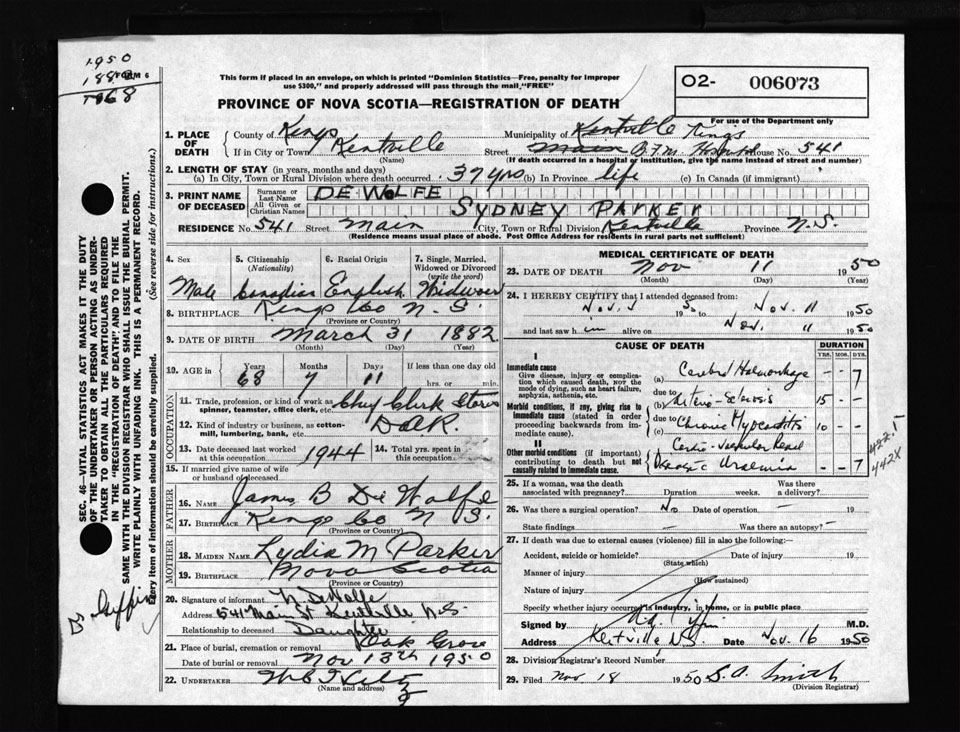 1950
1882
T068
FORM 6
This form if placed in an envelope, on which is printed "Dominion Statistics—Free, penalty for improper
use $300," and properly addressed will pass through the mail "FREE"
02- 006073
For use of the Department only
PROVINCE OF NOVA SCOTIA—REGISTRATION OF DEATH
1. PLACE OF DEATH County of Kings Municipality of Kentville Kings
If in City or Town Kentville (Name) Street Main House No. 541
(If death occurred in a hospital or institution, give the name instead of street and number)
2. LENGTH OF STAY (in years, months and days)
(a) In City, Town or Rural Division where death occurred 37 yrs (b) In Province life (c) In Canada (if immigrant)
3. PRINT NAME OF DECEASED Surname or Last Name DE WOLFE
All Given or Christian Names SYDNEY PARKER
RESIDENCE No. 541 Street Main City, Town or Rural Division Kentville Province N.S.
(Residence means usual place of abode. Post Office Address for residents in rural parts not sufficient)
4. Sex 5. Citizenship (Nationality) 6. Racial Origin 7. Single, Married, Widowed or Divorced (write the word)
Male Canadian English Widower
8. BIRTHPLACE Kings Co N. S.
(Province or Country)
9. DATE OF BIRTH March 31 1882
(Month) (Day) (Year)
10. AGE in Years Months Days If less than one day old
68 7 11 hrs. or min.
OCCUPATION
11. Trade, profession, or kind of work as spinner, teamster, office clerk, etc. Chief Clerk Stores
12. Kind of industry or business, as cotton-mill, lumbering, bank, etc. D.A.R.
13. Date deceased last worked at this occupation 1944 14. Total yrs. spent in this occupation
15. If married give name of wife or husband of deceased
FATHER
16. Name James B De Wolfe
17. Birthplace Kings Co N S.
(Province or Country)
MOTHER
18. Maiden Name Lydia M Parker
19. Birthplace Nova Scotia
(Province or Country)
20. Signature of informant DeWolfe
Address 541 Main St Kentville N.S.
Relationship to deceased Daughter
21. Place of burial, cremation or removal Oak Grove
Date of burial or removal Nov 13th 1950
22. UNDERTAKER
(Name and address)
MEDICAL CERTIFICATE OF DEATH
23. DATE OF DEATH Nov 11 1950
(Month) (Day) (Year)
24. I HEREBY CERTIFY that I attended deceased from
Nov. 5 1950 to Nov. 11 1950
and last saw him alive on Nov. 11 1950
CAUSE OF DEATH DURATION
YRS. MOS. DYS.
I
Immediate cause
Give disease, injury or complication which caused death, NOT the mode of dying, such as heart failure, asphyxia, asthenia, etc.
(a) Cerebral Haemorrhage - - 7
due to
Morbid conditions, if any, giving rise to immediate cause (stated in order proceeding backwards from immediate cause).
(b) Arterio-Sclerosis 15 - -
due to
(c) Chronic Myocarditis 10 - -
II
Other morbid conditions (if important) contributing to death but not causally related to immediate cause.
Cardio-vascular Renal
Disease Uraemia - - 7
422.1
442X
25. If a woman, was the death associated with pregnancy? Duration weeks. Was there a delivery?
26. Was there a surgical operation? No Date of operation - 19
State findings - Was there an autopsy? -
27. If death was due to external causes (violence) fill in also the following:—
Accident, suicide or homicide? Date of injury 19
(State which)
Manner of injury
(How sustained)
Nature of injury
Specify whether injury occurred in industry, in home, or in public place
Signed by M.D.
Address Kentville N.S. Date Nov. 16 1950
28. Division Registrar's Record Number
29. Filed Nov. 18 1950 S. A. Smith
(Division Registrar)
SEC. 46—VITAL STATISTICS ACT MAKES IT THE DUTY
OF THE UNDERTAKER OR PERSON ACTING AS UNDER-
TAKER TO OBTAIN ALL THE PARTICULARS REQUIRED
IN THE "REGISTRATION OF DEATH" AND TO FILE THE
SAME WITH THE DIVISION REGISTRAR WHO SHALL ISSUE THE BURIAL PERMIT.
WRITE PLAINLY WITH UNFADING INK. THIS IS A PERMANENT RECORD.
Every item of information should be carefully supplied. (See reverse side for instructions.)